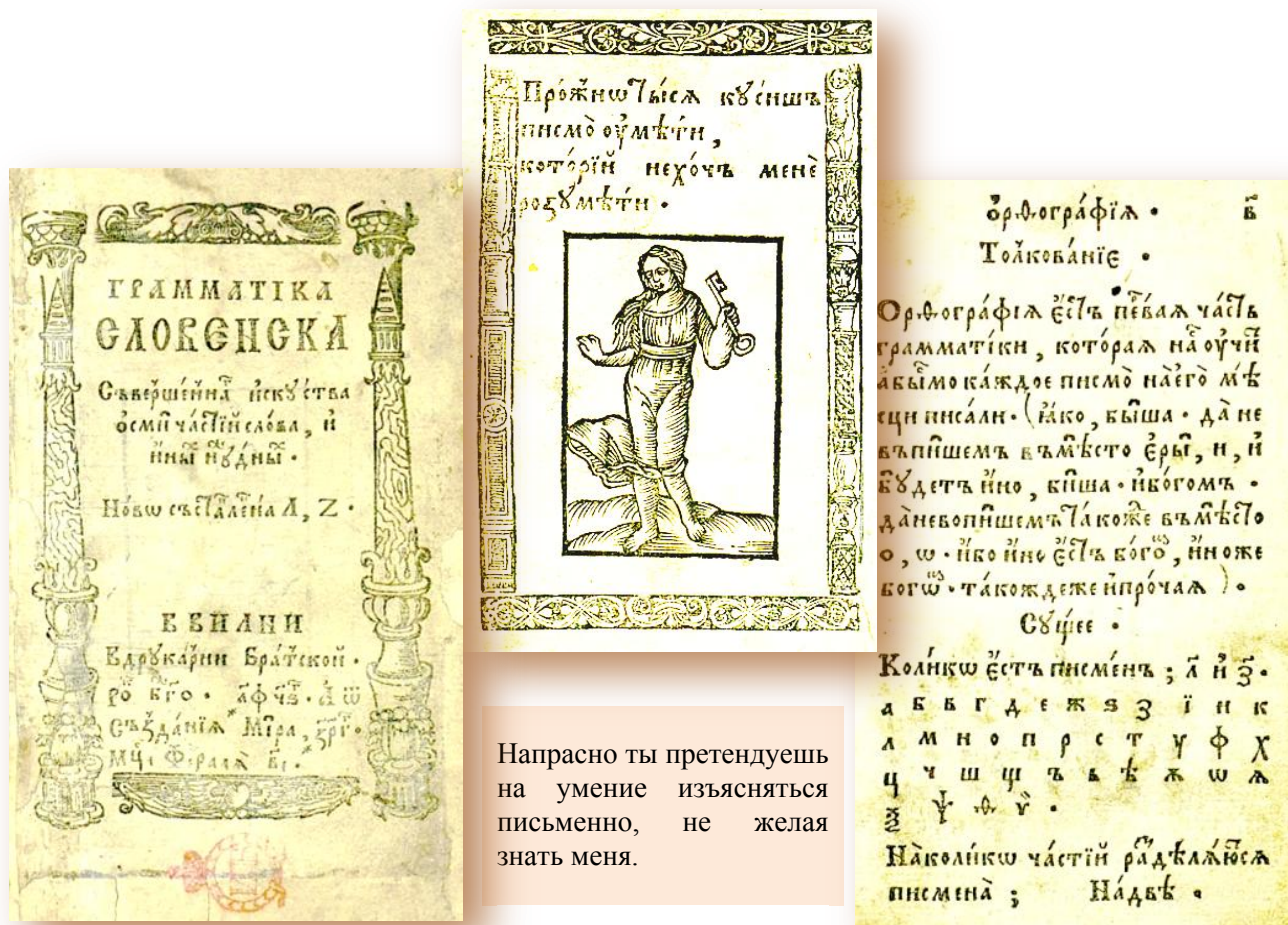 ГРАММАТІКА
СЛОВЕНСКА
Съвершеннаⷢ҇ искꙋства
осми частїй слова, и
иныⷯ нꙋдныⷯ.
Новѡ съставлена Л, Z.
ВВИЛНИ
Вдрꙋкарни Братской.
Създанїѧ Мира,
Про́жнѡ ты́сѧ кꙋ́сишъ
писмо̀ оу҆мѣ́ти,
кото́рїй нехо́чъ менѐ
розꙋмѣ́ти.
Напрасно ты претендуешь
на умение изъясняться
письменно, не желая
знать меня.
Орѳогра́фїѧ. в҃
Толкова́нїе.
Орѳогра́фїѧ є҆́стъ пе́рваѧ ча́сть
грамма́тіки, кото́раѧ на́съ оу҆чи́тъ
абы́смо ка́ждое писмо̀ на́его̀ мѣ́
сци писа́ли. (ꙗ҆́ко, бы́ша. да̀ не
въпи́шемъ въмѣ́сто є҆ры̀, и, и҆
бꙋ́детъ и҆́но, би́ша. и҆бо́гомъ.
да̀невопи́шемъ та́коже въмѣ́сто
о, ѡ. и҆́бо и҆́но є҆́стъ бо́гоⷨ, и҆́ноже
бо́гѡⷨ. та́кождеже и҆про́чаѧ ).
Сꙋ́щее.
Коли́кѡ є҆́стъ писме́нъ ; л҃ и҆ з҃.
а б в г д е ж ѕ з ї и к
л м н о п р с т у ф х
ц ч ш щ ъ ь ѣ ѫ ѡ ѧ
ѯ ѱ ѳ ѵ.
На̀коли́кѡ ча́стїй раздѣлѧ́ютсѧ
писмена̀ ; На́двѣ.